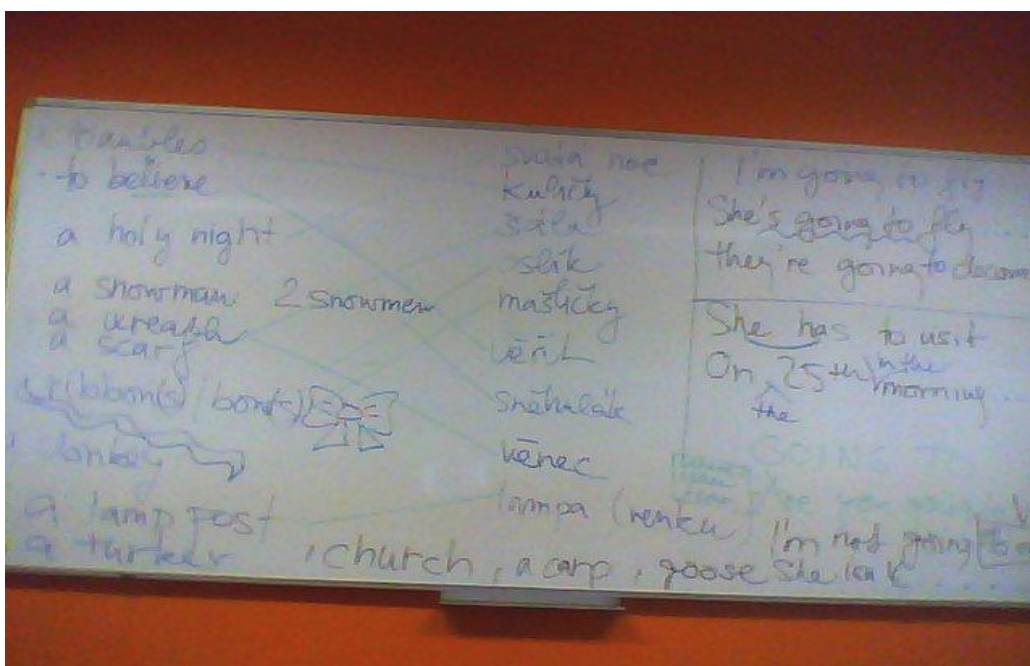 baubles
to believe
a holy night
a snowman 2 snowmen
a wreath
a scarf
ribbon(s) / bow(s)
donkey
a lamp post
a turkey , church , a carp , goose
svatá noc
kuličky
šála
oslík
mašličky
věřit
sněhulák
věnec
lampa (venku)
I'm going to
She's going to fly ...
they're going to
She has to
On 25th in the morning ...
the
GOING TO
I'm not going to
She isn't